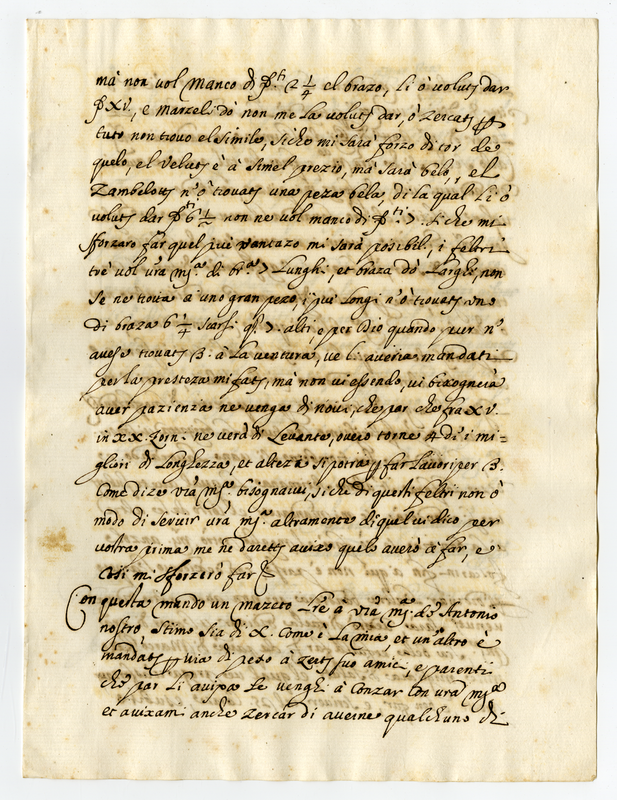 mà non vol manco di ₰ti 2 1/4 el brazo, li ò voluto dar
₰ XV, e Marzeli dò non me la voluto dar, ò zercato p
tuto non trovo el simile, siche mi sarà forzo di tor de
quelo, el veluto è à simel prezio, mà sarà belo, el
Zambeloto n'ò trovato una peza bela, di la qual li ò
voluto dar ₰ti 6 1/2 non ne vol manco di ₰ti 7. siche mi
sforzaro far quel più vantazo mi sarà posibil, i feltri
trè vol vrã mag. di bra 7 lunghi, et braza dò larghi, non
se ne trova à uno gran pezo, i più longi n'ò trovato uno
di braza 6 1/4 scarsi alti, e per Dio quando pur n'
avese trovato 3. à la ventura, ve li averia mandati
per la presteza mi fate, mà non vi essendo, vi bixogneria
aver pazienzia ne venga di novi, che par che fra XV.
in XX zorni ne verà di Levante, overo torne 4 di i mi=
gliori di longhezza, et alteza si potrà far lavori per 3.
Come dize vrã mag. bisognavi, siche di questi feltri non ò
modo di servir vrã mag. altramente di quel vi dico per
vostra prima me ne darete avixo quelo averò à far, e
cosi mi sforzerò far
Con questa mando un mazeto lre à vrã mag. de Antonio
nostro, stimo sia di X. come è la mia, et un'altro è
mandato p via di peso à zerti suo amici, e parenti
che par li avixa le venghi à conzar con vrã mag.
et avixami anche zercar di averne qualch'uno di